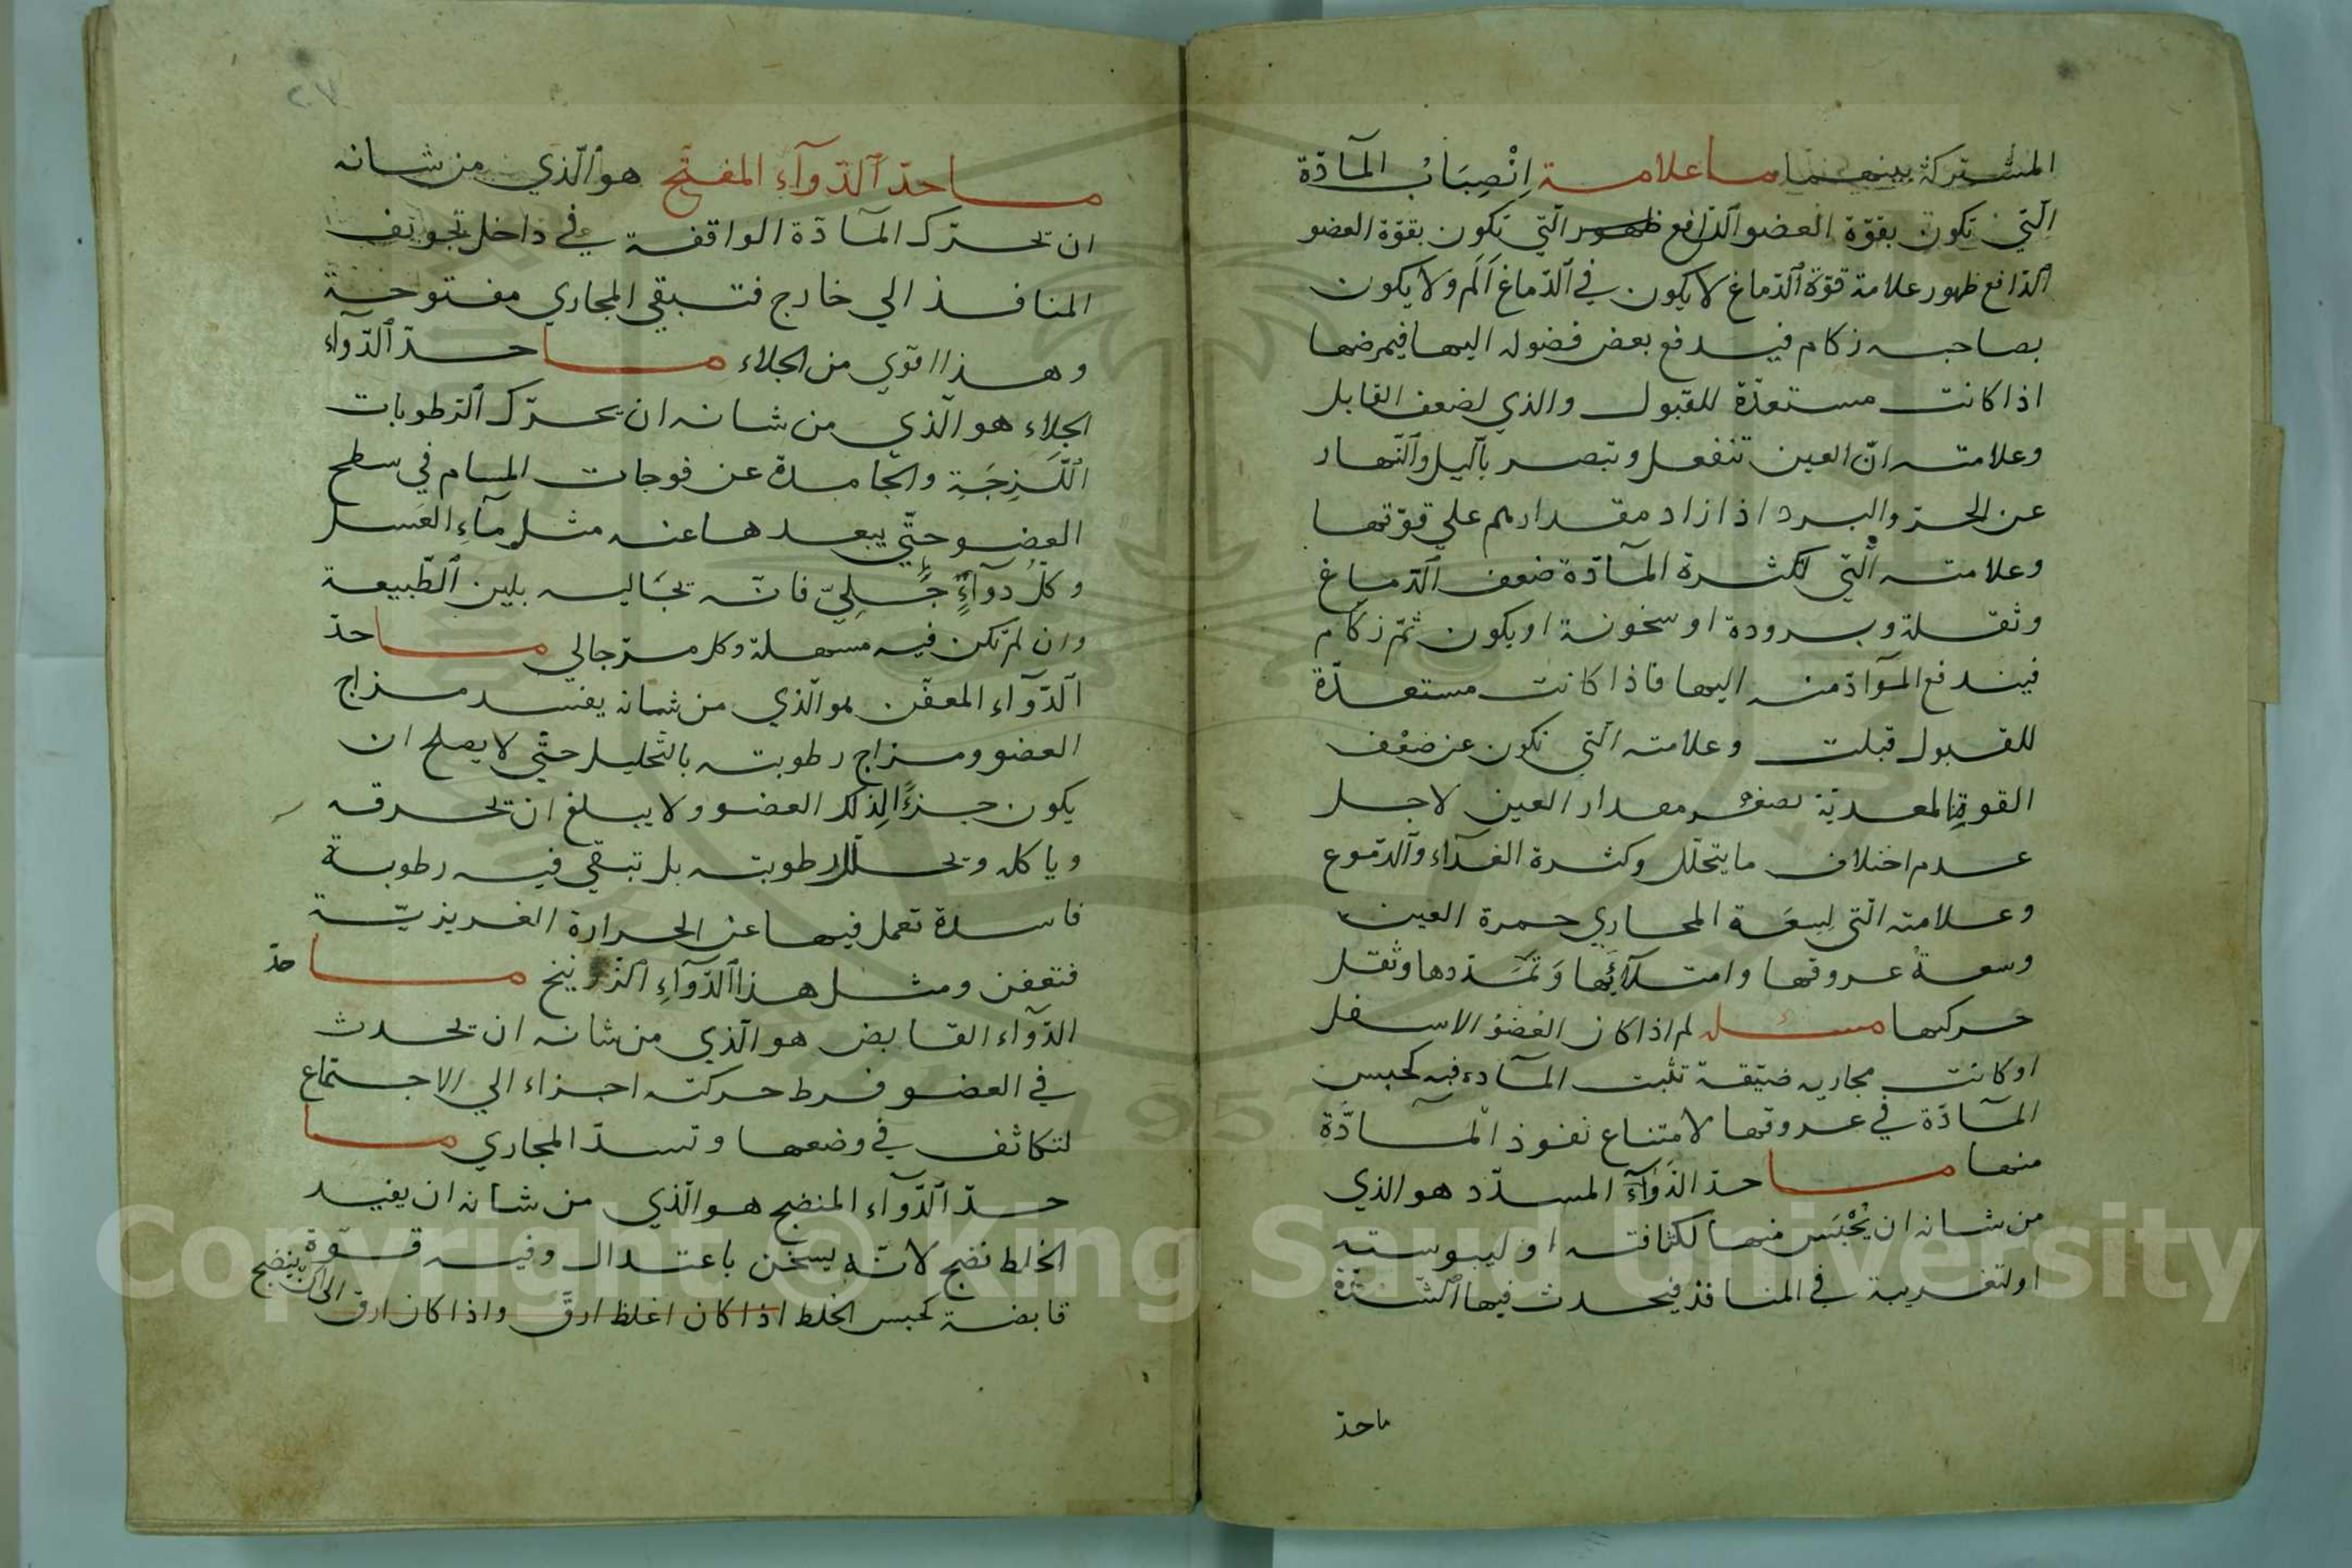 المشتركة بينهما ما علامة اِنْصِبَابُ المآدّة
الّتي تكون بقوّة العضو الدّافع ظهور الّتي تكون بقوّة العضو
الدّافع ظهور علامة قوّة الدّماغ لا يكون في الدّماغ اَلَم ولا يكون
بصاحبه زكام فيدفع بعض فضوله اليها فيمرضها
اذا كانت مستعدّة للقبول والذي لضعف القابل
وعلامته انّ العين تنفعل وتبصر باليل والنّهار
عن الحرّ والبرد اذا زاد مقدارهم علي قوّتها
وعلامته الّتي لكثرة المآدّة ضعف الدّماغ
وثقله وبرودة او سخونة او يكون ثمّ زكام
فيندفع الموآدّ منه اليها فاذا كانت مستعدّة
للقبول قبلت وعلامته الّتي تكون عن ضعْف
القوة المعدية لصغر مقدار العين لاجل
عدم اختلاف ما يتحلّل وكثرة الغدآء والدّموع
وعلامته الّتي لِسِعَة المجاري حمرة العين
وسعة عروقها وامتلآئِها وَتمَدّدها وثقل
حركتها مسئله لم اذا كان العضوُ الاسفل
او كانت مجاريه ضيّقة تثبت المآدة فيه كحبس
المآدّة في عروقها لامتناع نفوذ المآدَّة
منها ما حدّ الدَّوَآءِ المسدّد هو الذي
من شانه ان يُحْبَس فيها لكثافته او ليبوسته
او لتغرية في المنافذ فيحدث فيها السّدّة
ما حدّ
ما حدّ الدّوآءِ المفتّح هو الّذي من شانه
ان يحرّك المآدّة الواقفة في داخل تجويف
المنافذ الي خارج فتبقي المجاري مفتوحة
وهذا اقوي من الجلاء ما حدّ الدّوآء
الجلاء هو الّذي من شانه ان يحرّك الرّطوبات
اللَّزِجَةِ والجامدة عن فوجات المسام في سطح
العضو حتّي يبعدها عنه مثل مآءِ العَسل
وكلّ دوآءٍ جَلِيّ فانّه بجَاليه يلين الطّبيعة
وان لم تكن فيه مسهلة وكل مرّ جالي ما حدّ
الدّوآء المعفّن هو الّذي من شانه يفسد مزاج
العضو ومزاج رطوبته بالتّحليل حتّي لا يصلح ان
يكون جزءًا لِذلك العضو ولا يبلغ ان يحرقه
وياكله ويحلّل رطوبته بل تبقي فيه رطوبة
فاسدة تعمل فيها عن الحرارة الغريزيّة
فتعفن ومثل هذا الدّوآءِ الزّرنيخ ما حدّ
الدّوآء القابض هو الّذي من شانه ان يحدث
في العضو فرط حركته اجزاء الي الاجتماع
لتكاثف في وضعها وتسدّ المجاري ما
حدّ الدّوآء المنضج هو الّذي من شانه ان يفيد
الخلط نضج لانّه يسخّن باعتدال وفيه قوّة
قابضة كحبس الخلط اذا كان اغلظ ارقّ واذا كان ارق
الي ان ينضج
Copyright © King Saud University
1957